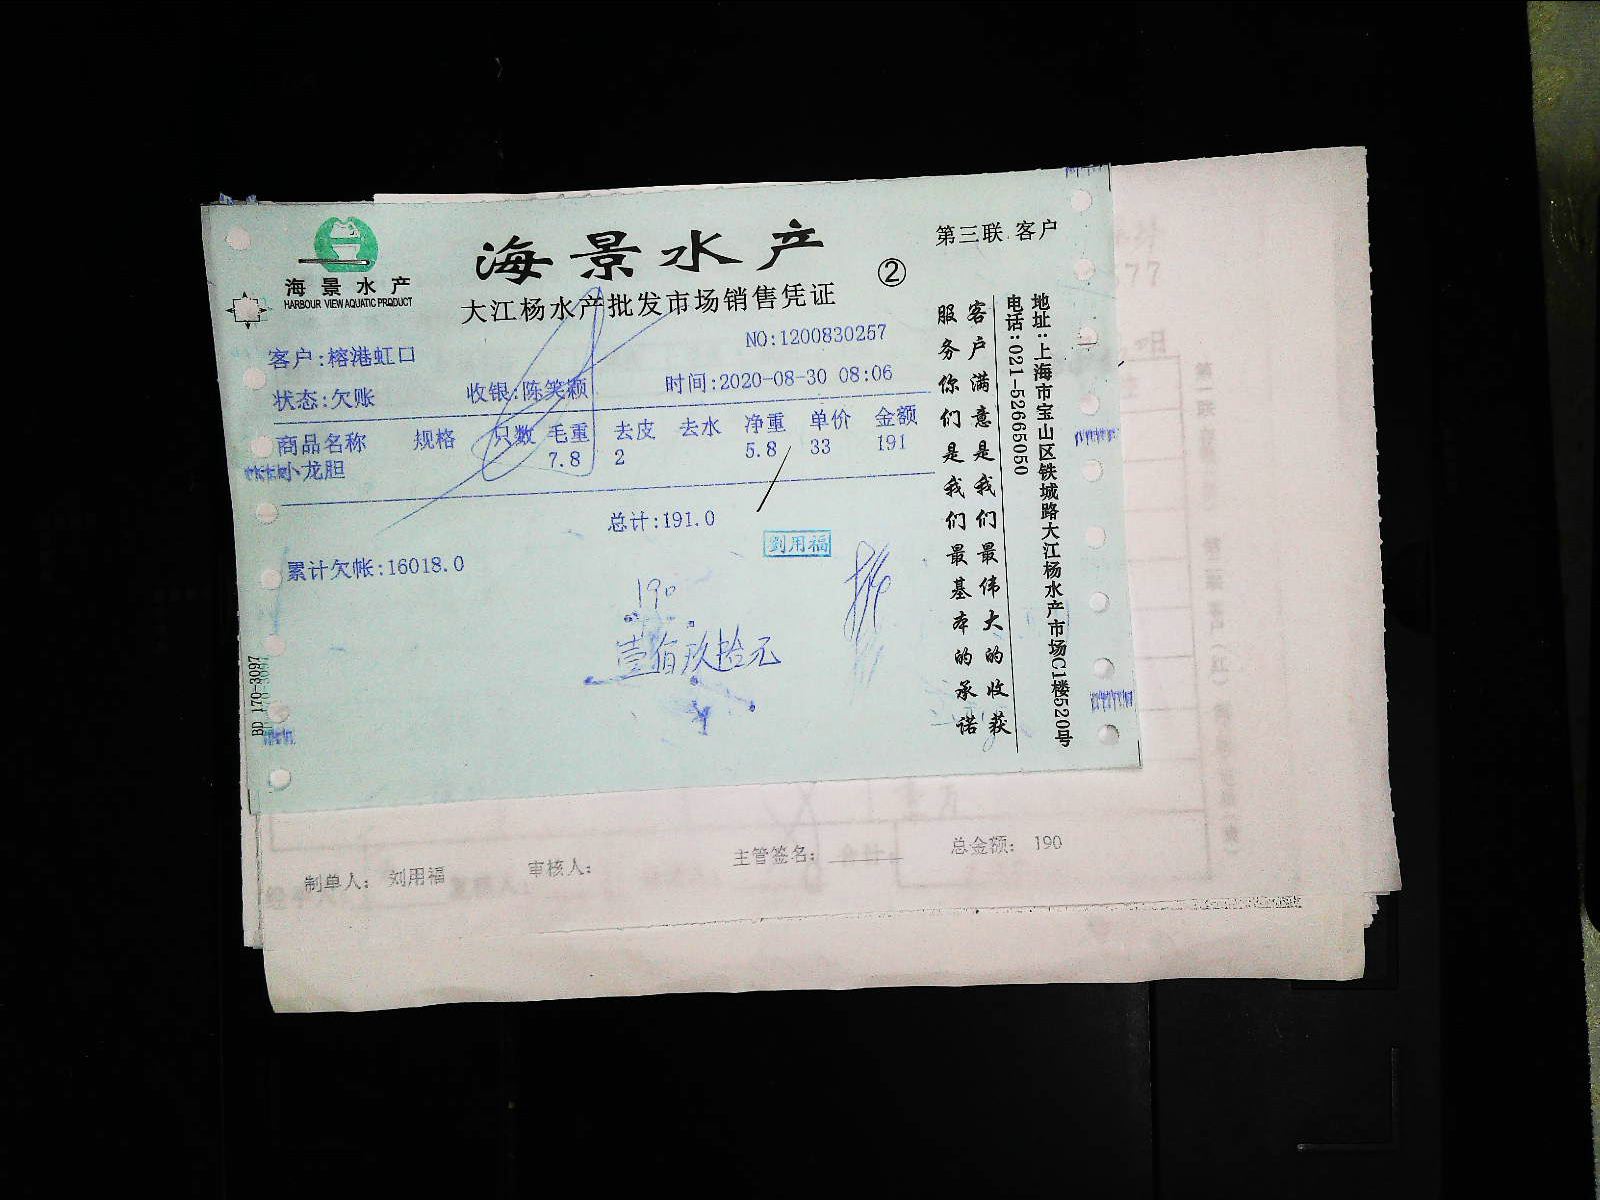 海景水产
HARBOUR VIEW AQUATIC PRODUCT
海景水产
大江杨水产批发市场销售凭证
②
第三联 客户
NO:1200830257
客户:榕港虹口
状态:欠账 收银:陈笑颖 时间:2020-08-30 08:06
商品名称 规格 只数 毛重 去皮 去水 净重 单价 金额
小龙胆 7.8 2 5.8 33 191
总计:191.0
劉用福
累计欠帐:16018.0
190
壹佰玖拾元
BD 170-3097
地址:上海市宝山区铁城路大江杨水产市场C1楼520号
电话:021-52665050
客户满意是我们最伟大的收获
服务你们是我们最基本的承诺
制单人: 刘用福 审核人: 主管签名: 总金额: 190